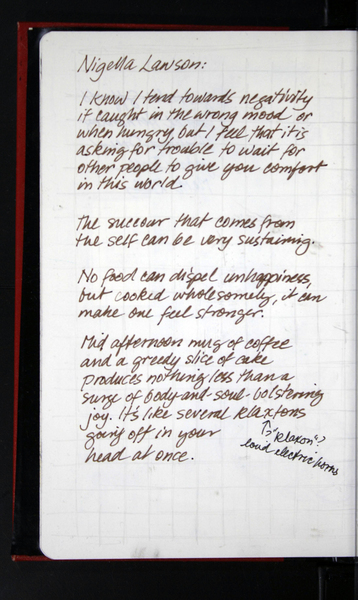 Nigella Lawson:
I know I tend towards negativity
if caught in the wrong mood or
when hungry, but I feel that it is
asking for trouble to wait for
other people to give you comfort
in this world.
The succour that comes from
the self can be very sustaining.
No food can dispel unhappiness,
but cooked wholesomely, it can
make one feel stronger.
Mid afternoon mug of coffee
and a greedy slice of cake
produces nothing less than a
surge of body-and-soul-bolstering
joy. It's like several klaxtons
going off in your
head at once.
↑> "klaxon"?
loud electric horns